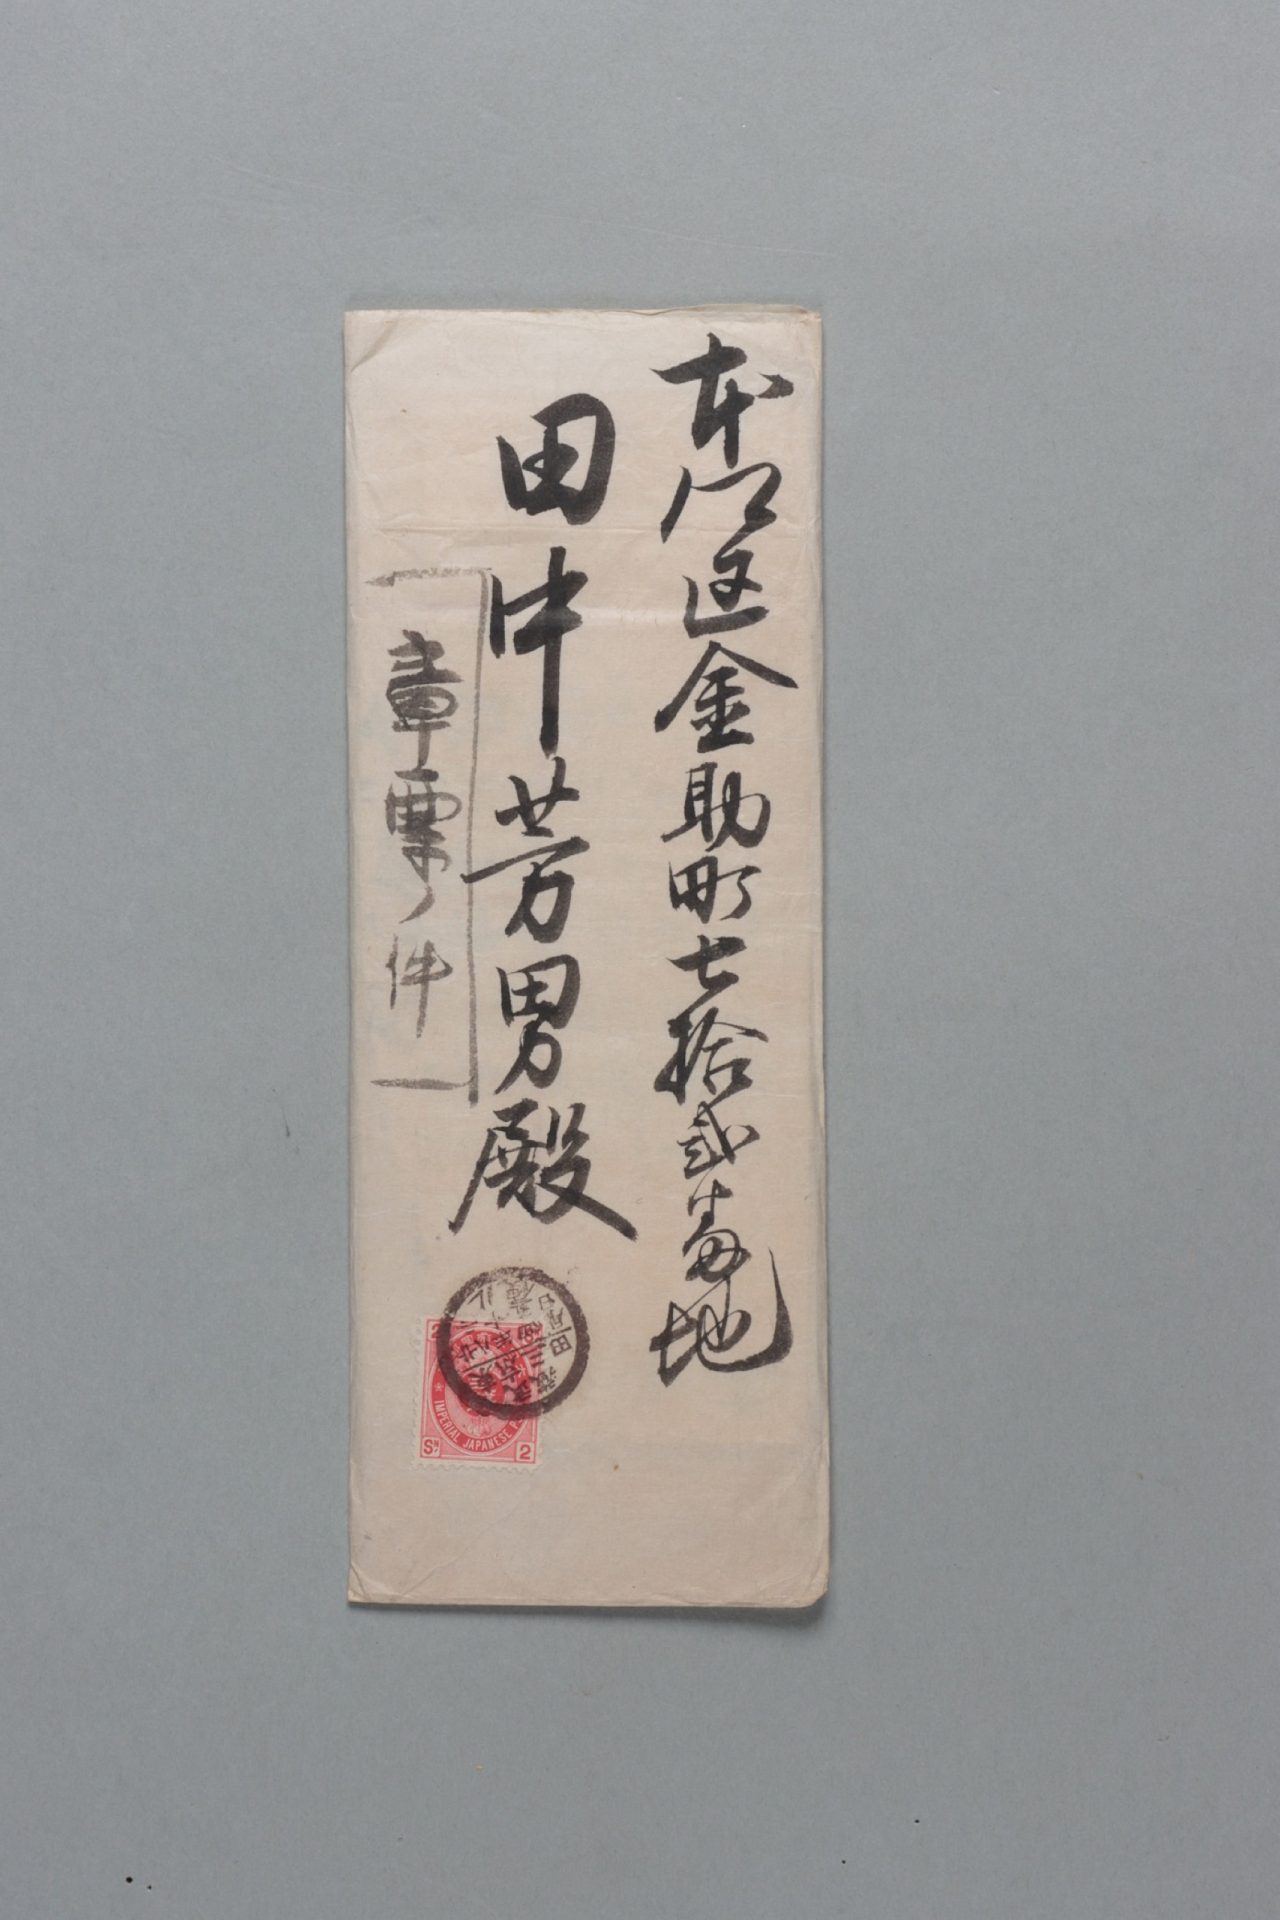 本郷区金助町七拾弐番地
田中芳男殿
章票ノ件
2
IMPERIAL JAPANESE P
SN
2